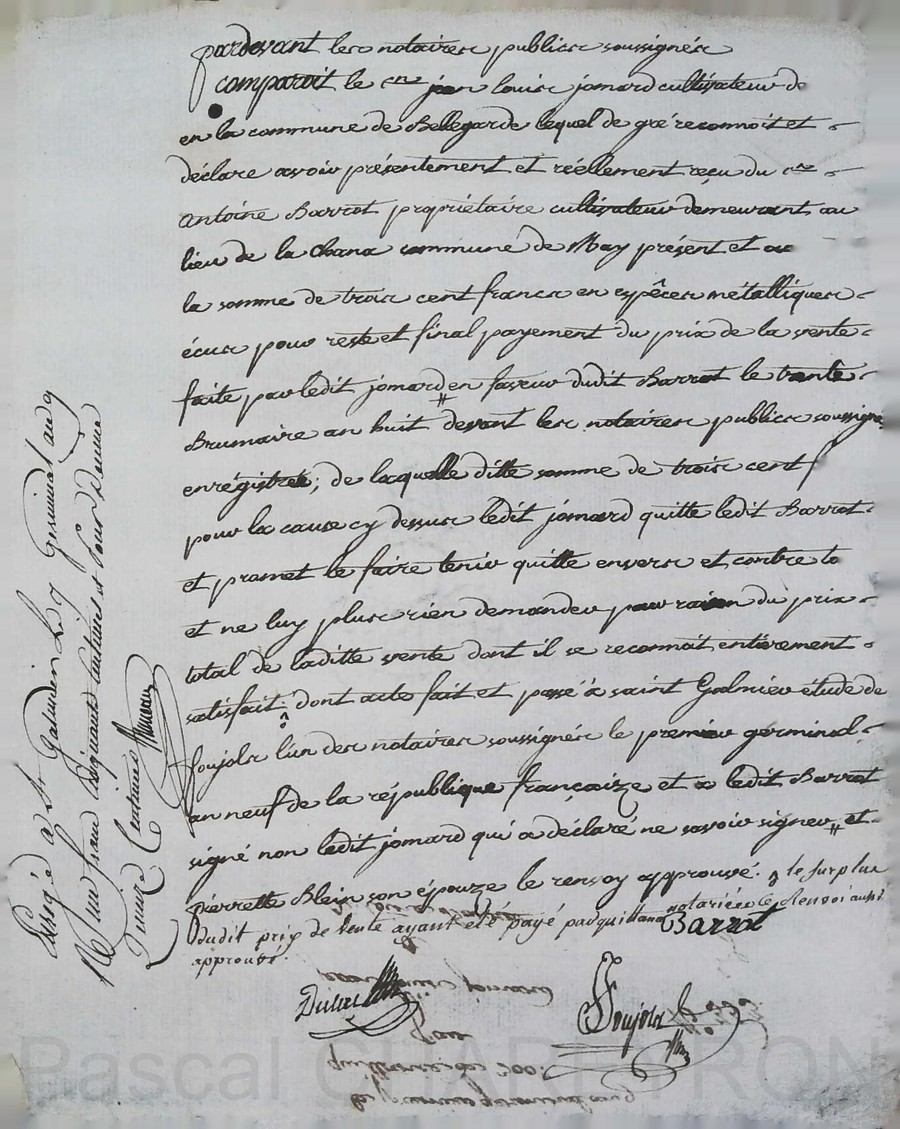 pardevant les notaires publics soussignés
comparoit le cen jean louis jomard cultivateur de
en la commune de Bellegarde lequel de gré reconnoit et
déclare avoir présentement et réellement reçu du cen
antoine Barrot propriétaire cultivateur demeurant au
lieu de la chana commune de présent et ac
la somme de trois cent francs en espêces métalliques
écus pour reste et final payement du prix de la vente
faite par ledit jomard en faveur dudit Barrot le trente
Brumaire an huit devant les notaires publics soussigné
enrégistrée; de laquelle ditte somme de trois cent f
pour la cause cy dessus ledit jomard quitte ledit Barrot
et promet le faire tenir quitte envers et contre to
et ne luy plus rien demander pour raison du prix
total de laditte vente dont il se reconnoit entièrement
satisfait. dont acte fait et passé à saint Galmier étude de
Soujols l'un des notaires soussignés le premier germinal
an neuf de la république françaize et a ledit Barrot
signé non ledit jomard qui a déclaré ne savoir signer, et
pierrette Blein son épouze le renvoy approuvé. le surplus
dudit prix de vente ayant été payé par quittance notariée le Renvoi aussi
approuvé.
Barrot
Soujols
Enregé à St Galmier le 9 Germinal an 9
Reçu un franc cinquante centimes et pour
centimes